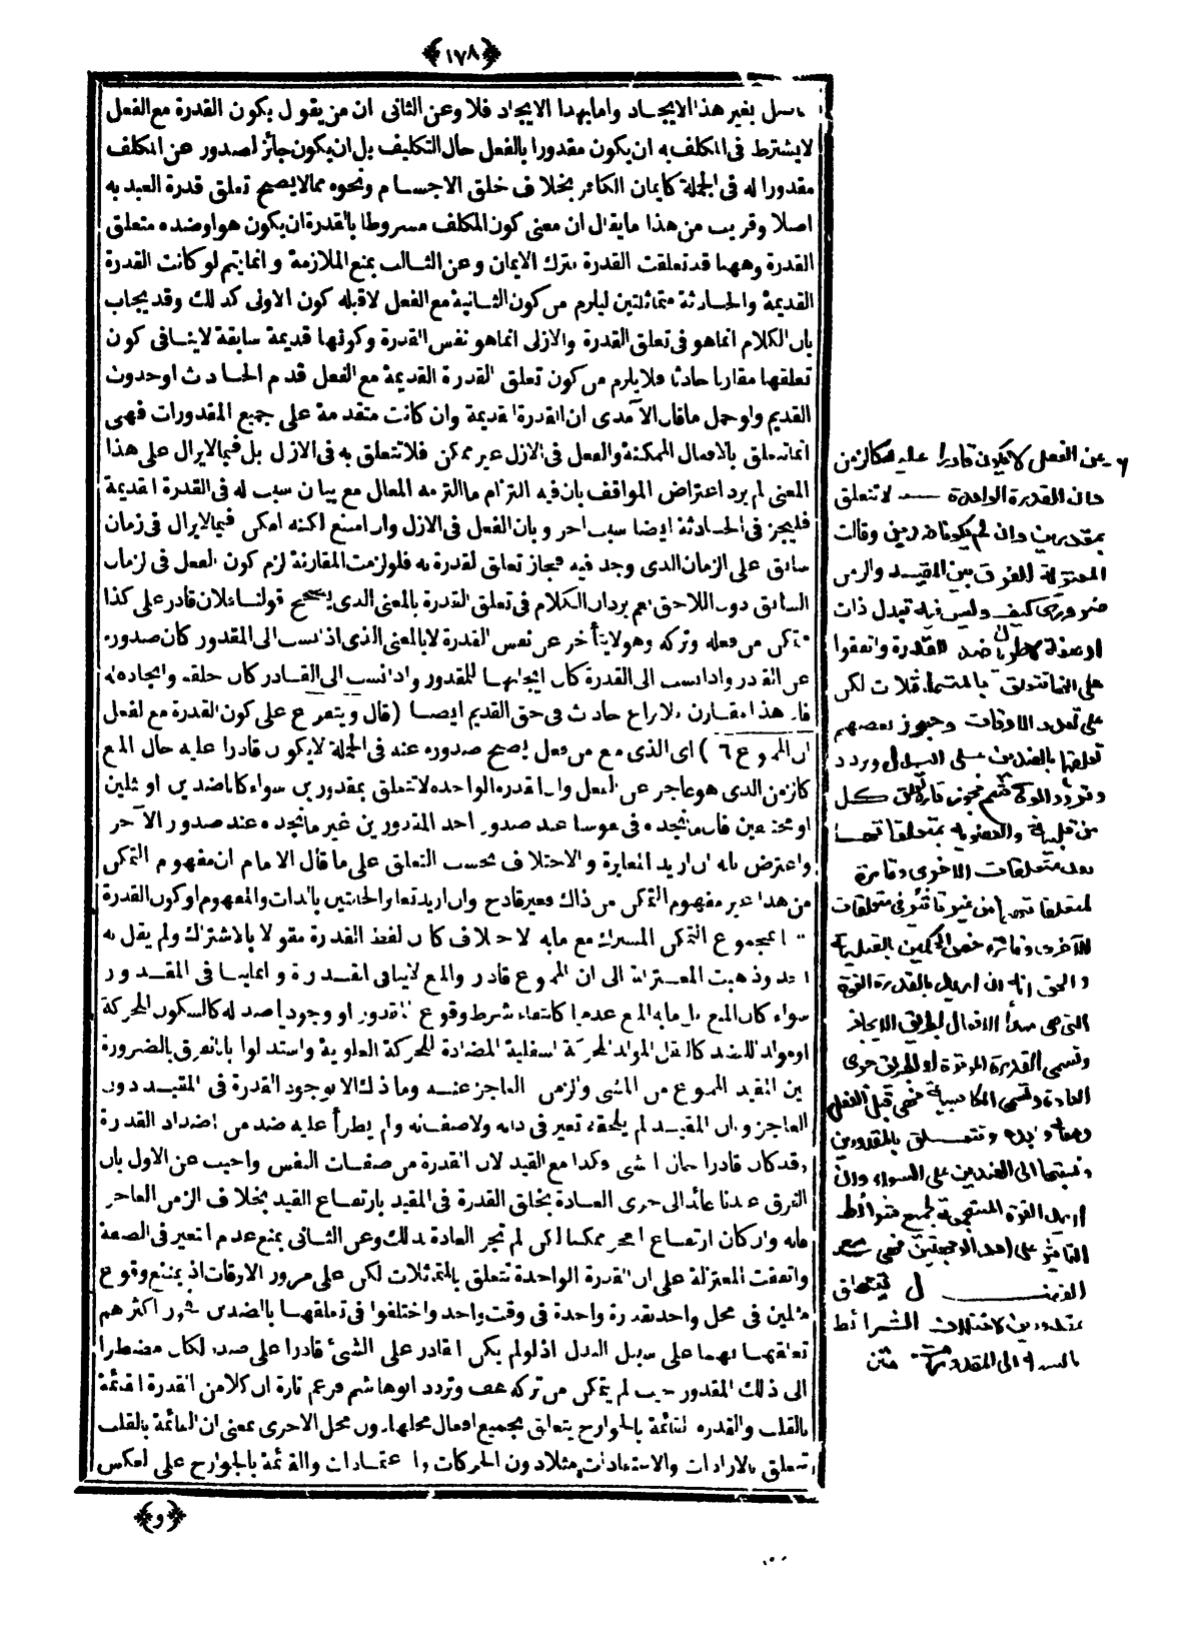 ﴿١٧٨﴾
بغير هذا الايجاد واما بهذا الايجاد فلا وعن الثانى ان من يقول بكون القدرة مع الفعل
لا يشترط فى المكلف به ان يكون مقدورا بالفعل حال التكليف بل ان يكون جائز الصدور عن المكلف
مقدورا له فى الجملة كايمان الكافر بخلاف خلق الاجسام ونحوه مما لا يصح تعلق قدرة العبد به
اصلا وقريب من هذا ما يقال ان معنى كون المكلف مشروطا بالقدرة ان يكون هو اوضده متعلق
القدرة وههنا قد تعلقت القدرة بترك الايمان وعن الثالث بمنع الملازمة وانما يتم لو كانت القدرة
القديمة والحادثة متماثلتين ليلزم من كون الثانية مع الفعل لا قبله كون الاولى كذلك وقد يجاب
بان الكلام انما هو فى تعلق القدرة والازلى انما هو نفس القدرة وكونها قديمة سابقة لا ينافى كون
تعلقها مقارنا حادثا فلا يلزم من كون تعلق القدرة القديمة مع الفعل قدم الحادث اوحدوث
القديم ولو حمل ما قال الآمدى ان القدرة القديمة وان كانت متقدمة على جميع المقدورات فهى
انما تتعلق بالافعال الممكنة والفعل فى الازل غير ممكن فلا تتعلق به فى الازل بل فيما لا يزال على هذا
المعنى لم يرد اعتراض المواقف بان فيه التزام ما التزمه المعلل مع بيان سبب له فى القدرة القديمة
فليجز فى الحادثة ايضا سبب آخر وبان الفعل فى الازل وان امتنع لكنه امكن فيما لا يزال فى زمان
سابق على الزمان الذى وجد فيه فجاز تعلق القدرة به فلو لزمت المقارنة لزم كون الفعل فى الزمان
السابق دون اللاحق نعم يرد ان الكلام فى تعلق القدرة بالمعنى الذى يصحح قولنا فلان قادر على كذا
متمكن من فعله وتركه وهو لا يتأخر عن نفس القدرة لا بالمعنى الذى اذا نسب الى المقدور كان صدوره
عن القدر واذا نسب الى القدرة كان ايجابها للمقدور واذا نسب الى القادر كان خلقه وايجاده له
فان هذا مقارن بلا نزاع حادث فى حق القديم ايضا (قال ويتفرع على كون القدرة مع الفعل
ان الممنوع ٦) اى الذى منع من فعل يصح صدوره عنه فى الجملة لا يكون قادرا عليه حال المنع
كالزمن الذى هو عاجز عن الفعل وان القدرة الواحدة لا تتعلق بمقدورين سواء كانا ضدين او مثلين
او مختلفين فان ما نجده فى نفوسنا عند صدور احد المقدورين غير ما نجده عند صدور الآخر
واعترض بانه ان اريد المغايرة والاختلاف بحسب التعلق على ما قال الامام ان مفهوم التمكن
من هذا غير مفهوم التمكن من ذاك فغير قادح وان اريد تغاير الحالتين بالذات والمفهوم او كون القدرة
لمجموع التمكن المشترك مع ما به الاختلاف كان لفظ القدرة مقولا بالاشتراك ولم يقل به
احد وذهبت المعتزلة الى ان الممنوع قادر والمنع لا ينافى القدرة وانما ينافى المقدور
سواء كان المنع عدميا كانتفاء شرط وقوع المقدور او وجوديا ضد له كالسكون للحركة
او مولد للضد كالثقل المولد للحركة السفلية المضادة للحركة العلوية واستدلوا بالتفرق بالضرورة
بين المقيد الممنوع من المشى والزمن العاجز عنه وما ذلك الا بوجود القدرة فى المقيد دون
العاجز وبان المقيد لم يلحقه تغير فى ذاته ولا صفاته ولم يطرأ عليه ضد من اضداد القدرة
وقد كان قادرا حال المشى وكذا مع القيد لان القدرة من صفات النفس واجيب عن الاول بان
الفرق عندنا عائد الى جرى العادة بخلق القدرة فى المقيد بارتفاع القيد بخلاف الزمن العاجز
فانه وان كان ارتفاع العجز ممكنا لكن لم تجر العادة بذلك وعن الثانى بمنع عدم التغير فى الصفة
واتفقت المعتزلة على ان القدرة الواحدة تتعلق بالمتماثلات لكن على مرور الاوقات اذ يمتنع وقوع
مثلين فى محل واحد بقدرة واحدة فى وقت واحد واختلفوا فى تعلقها بالضدين فجوز اكثرهم
تعلقها بهما على سبيل البدل اذ لو لم يكن القادر على الشئ قادرا على ضده لكان مضطرا
الى ذلك المقدور حيث لم يتمكن من تركه وتردد ابو هاشم فزعم تارة ان كلا من القدرة القائمة
بالقلب والقدرة القائمة بالجوارح يتعلق بجميع افعال محلها دون محل الاخرى بمعنى ان القائمة بالقلب
تتعلق بالارادات والاعتقادات مثلا دون الحركات والاعتمادات والقائمة بالجوارح على العكس
﴿و﴾
٦ عن الفعل لا يكون قادرا عليه كالزمن
وان القدرة الواحدة لا تتعلق
بمقدورين وان لم يكونا ضدين وقالت
المعتزلة الفرق بين المقيد والزمن
ضرورى كيف وليس فيه تبدل ذات
او صفة او طريان ضد للقدرة واتفقوا
على انها تتعلق بالمتماثلات لكن
على تعدد الاوقات وجوز بعضهم
تعلقها بالضدين على البدل وردد
وتردد ابو هاشم فجوز تارة تعلق كل
من القلبية والعضوية بمتعلقاتها
دون متعلقات الاخرى وتارة
بمتعلقاتهما من غير تأثير فى متعلقات
الاخرى وتارة خص الحكمين بالقلبية
والحق انه ان اريد بالقدرة القوة
التى هى مبدأ الافعال بطريق الايجاد
وتسمى القدرة المؤثرة او بطريق جرى
العادة وتسمى الكاسبة فهى قبل الفعل
ومعه وبعده وتتعلق بالمقدورين
ونسبتها الى الضدين على السواء وان
اريد القوة المستجمعة لجميع شرائط
التأثير على احد الوجهين فهى مع
الفعل لا تتعلق
بمقدورين لاختلاف الشرائط
بالنسبة الى المقدورات متن